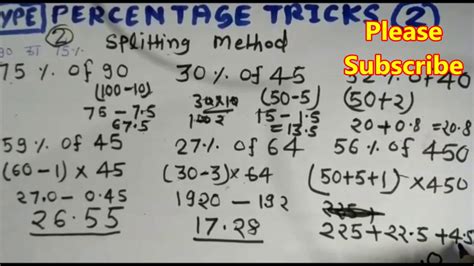 YPE] PERCENTAGE TRICKS (2)
(2) Splitting Method
Please
Subscribe
75 % of 90
(100-10)
75 - 7.5
67.5
30 % of 45
(50-5)
15 - 1.5
= 13.5
52 % of 40
(50+2)
20 + 0.8 = 20.8
59 % of 45
(60-1) × 45
27.0 - 0.45
26.55
27 % of 64
(30-3) × 64
1920 - 192
17.28
56 % of 450
(50+5+1) × 450
225 + 22.5 + 4.5